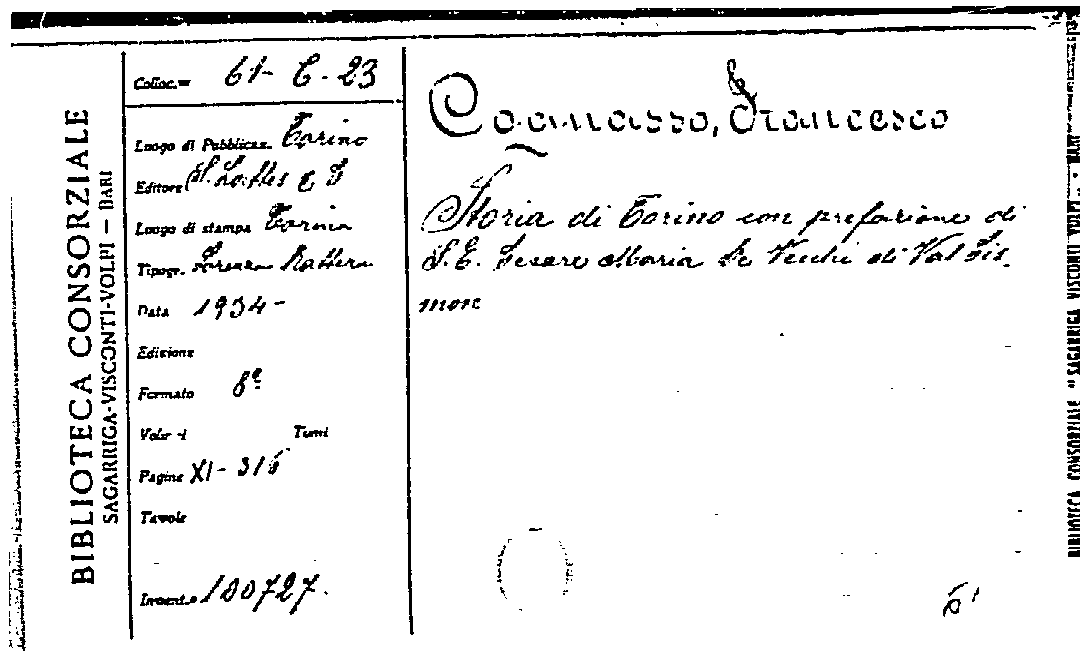 BIBLIOTECA CONSORZIALE
SAGARRIGA-VISCONTI-VOLPI — BARI
Colloc.ne 61- C - 23
Luogo di Pubblicaz. Torino
Editore S. Lattes e
Luogo di stampa Torino
Tipogr. Lorenzo Rattero
Data 1934 -
Edizione
Formato 8°
Volumi Tomi
Pagine XI - 316
Tavole
Invent.° 100727.
Cognasso, Francesco
Storia di Torino con prefazione di
S. E. Cesare Maria De Vecchi di Val Cis.
mon
BIBLIOTECA CONSORZIALE "SAGARRIGA VISCONTI VOLPI" - BARI